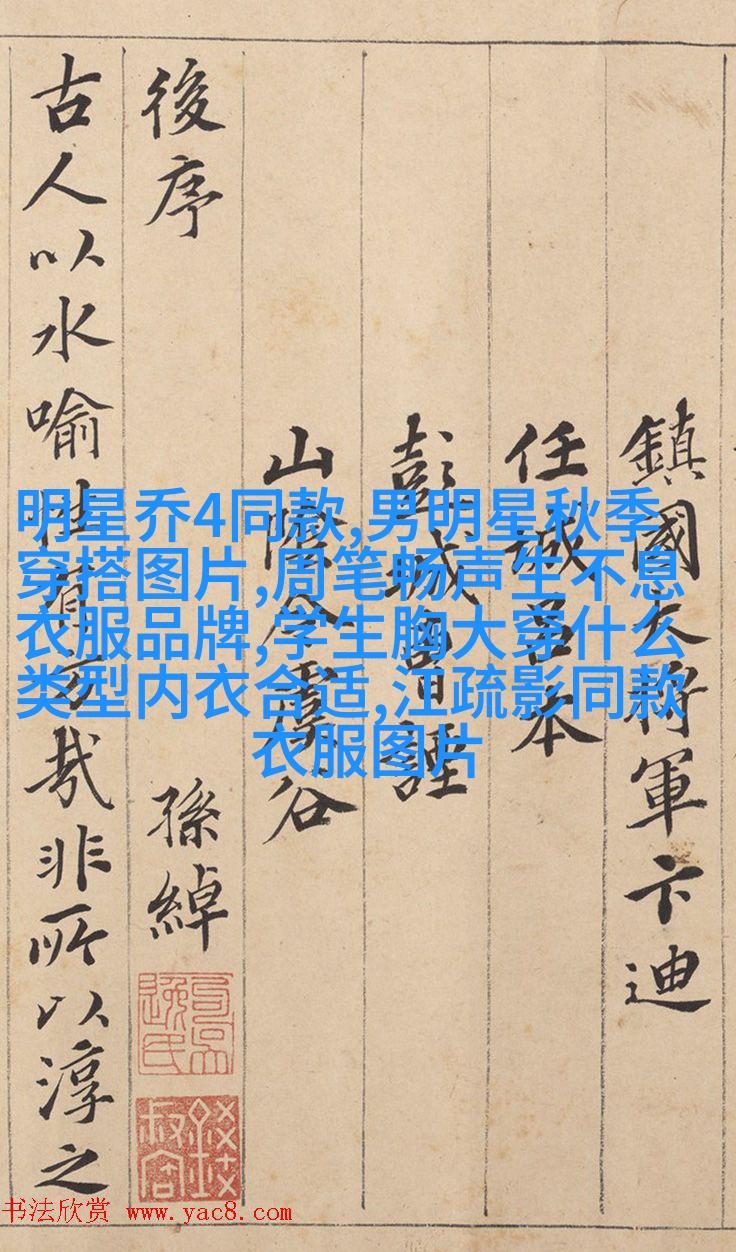 鎮國大將軍卞迪
任城呂本
彭城曹諲
山陰令虞谷
後序
孫綽
古人以水喻性有旨哉非所以淳之
明星乔4同款,男明星秋季
穿搭图片,周笔畅声生不息
衣服品牌,学生胸大穿什么
类型内衣合适,江疏影同款
衣服图片
书法欣赏 www.yac8.com